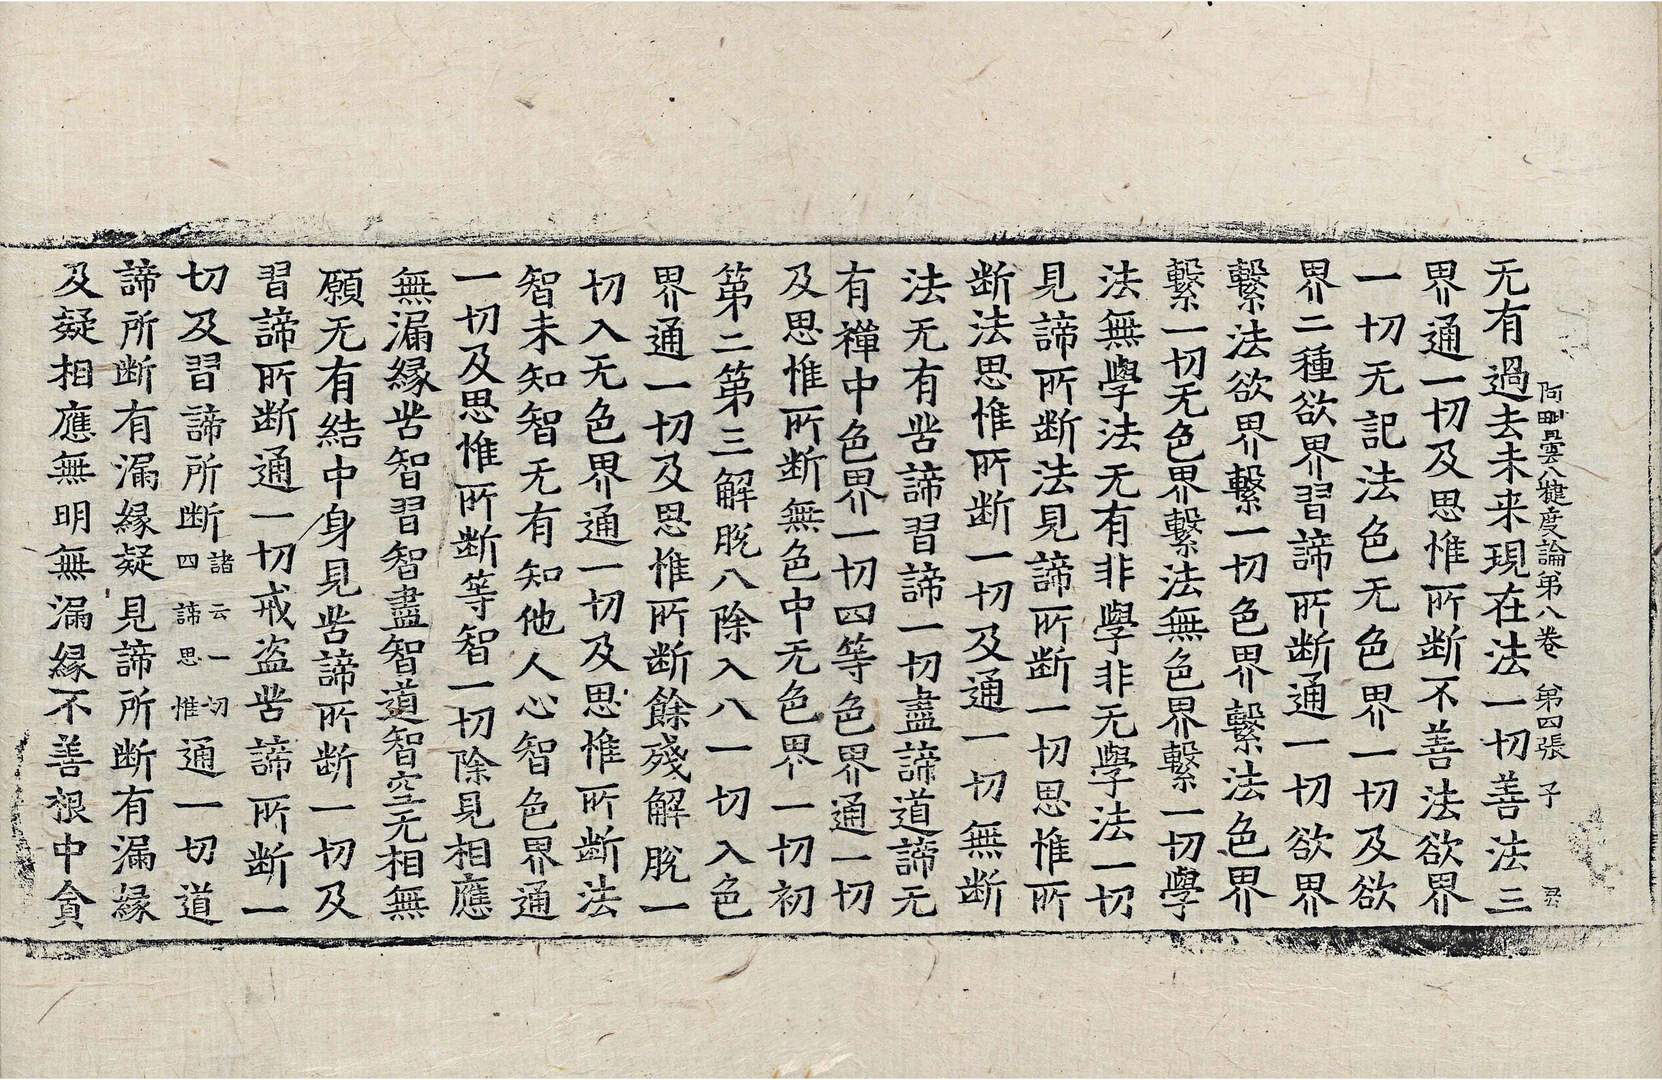 阿毗曇八犍度論第八卷　第四張　子
无有過去未来現在法一切善法三
界通一切及思惟所断不善法欲界
一切无記法色无色界一切及欲
界二種欲界習諦所断通一切欲界
繫法欲界繫一切色界繫法色界
繫一切无色界繫法無色界繫一切學
法無學法无有非學非无學法一切
見諦所断法見諦所断一切思惟所
断法思惟所断一切及通一切無断
法无有苦諦習諦一切盡諦道諦无
有禪中色界一切四等色界通一切
及思惟所断無色中无色界一切初
第二第三解脫八除入八一切入色
界通一切及思惟所断餘殘解脫一
切入无色界通一切及思惟所断法
智未知智无有知他人心智色界通
一切及思惟所断等智一切除見相應
無漏縁苦智習智盡智道智空无相無
願无有結中身見苦諦所断一切及
習諦所断通一切戒盗苦諦所断一
切及習諦所断諸云一切四諦思惟通一切道
諦所断有漏縁疑見諦所断有漏縁
及疑相應無明無漏縁不善根中貪